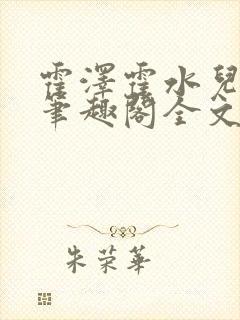 霍澤霍水兒
筆趣閣全文
朱荣華